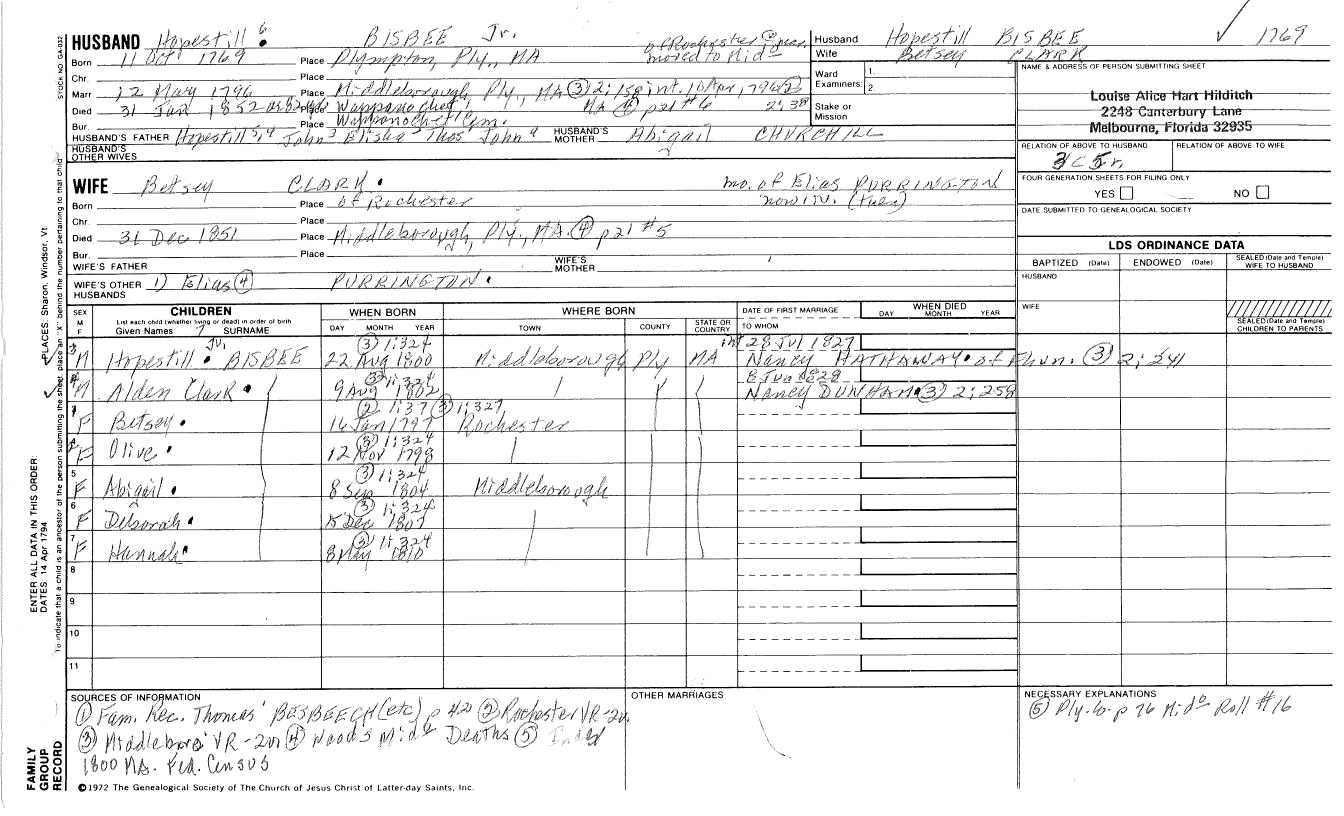 HUSBAND Hopestill 6 BISBEE Jr.
Born 11 Oct 1769 Place Plympton, Ply., MA of Rochester moved to Mid
Chr. Place
Marr 12 May 1796 Place Middleborough, Ply, MA (3) 2:158 int. 10 Apr 1796 (2) 2:38
Died 31 Jan 1852 Place Wappanochet MA (4) p21 #6
Bur. Place Wappanochet Cem.
HUSBAND'S FATHER Hopestill John Elisha Thos John HUSBAND'S MOTHER Abigail CHURCHILL
HUSBAND'S OTHER WIVES
WIFE Betsey CLARK mo. of Elias PURRINGTON
Born Place of Rochester now liv. (then)
Chr. Place
Died 31 Dec 1851 Place Middleborough, Ply., MA. (4) p21 #5
Bur. Place
WIFE'S FATHER WIFE'S MOTHER
WIFE'S OTHER HUSBANDS 1) Elias (4) PURRINGTON
Husband Hopestill BISBEE 1769
Wife Betsey CLARK
Ward Examiners: 1. 2
Stake or Mission
NAME & ADDRESS OF PERSON SUBMITTING SHEET
Louise Alice Hart Hilditch
2248 Canterbury Lane
Melbourne, Florida 32935
RELATION OF ABOVE TO HUSBAND RELATION OF ABOVE TO WIFE
3C5r.
FOUR GENERATION SHEETS FOR FILING ONLY
YES NO
DATE SUBMITTED TO GENEALOGICAL SOCIETY
LDS ORDINANCE DATA
BAPTIZED (Date) ENDOWED (Date) SEALED (Date and Temple) WIFE TO HUSBAND
HUSBAND
WIFE
SEALED (Date and Temple) CHILDREN TO PARENTS
SEX M F
CHILDREN
List each child (whether living or dead) in order of birth
Given Names 7 SURNAME
WHEN BORN
DAY MONTH YEAR
WHERE BORN
TOWN COUNTY STATE OR COUNTRY
DATE OF FIRST MARRIAGE
TO WHOM
WHEN DIED
DAY MONTH YEAR
(3) 1:324 int 28 Jul 1827
3 M Hopestill Jr. BISBEE 22 Aug 1800 Middleborough Ply MA Nancy HATHAWAY of Free. (3) 2:241
(3) 1:324 8 Jun 1828
4 M Alden Clark 9 Aug 1802 Nancy DUNHAM (3) 2:259
(2) 1:37 (3) 1:327
1 F Betsey 16 Jan 1797 Rochester
(3) 1:324
2 F Olive 12 Nov 1798
(3) 1:324
5 F Abigail 8 Sep 1804 Middleborough
(3) 1:324
6 F Deborah 15 Dec 1807
(3) 1:324
7 F Hannah 8 May 1810
8
9
10
11
SOURCES OF INFORMATION
(1) Fam. Rec. Thomas' BESBEECH (etc) p 420 (2) Rochester VR-2v.
(3) Middleboro' VR-2v (4) Wood's Mid. Deaths (5) Index
1800 MA. Fed. Census
OTHER MARRIAGES
NECESSARY EXPLANATIONS
(5) Ply. Co. p 76 Mid. Roll #16
©1972 The Genealogical Society of The Church of Jesus Christ of Latter-day Saints, Inc.
STOCK NO. GA-032
PLACES: Sharon, Windsor, Vt.
ENTER ALL DATA IN THIS ORDER:
DATES: 14 Apr 1794
To indicate that a child is an ancestor of the person submitting the sheet, place an "X" behind the number pertaining to that child
FAMILY GROUP RECORD